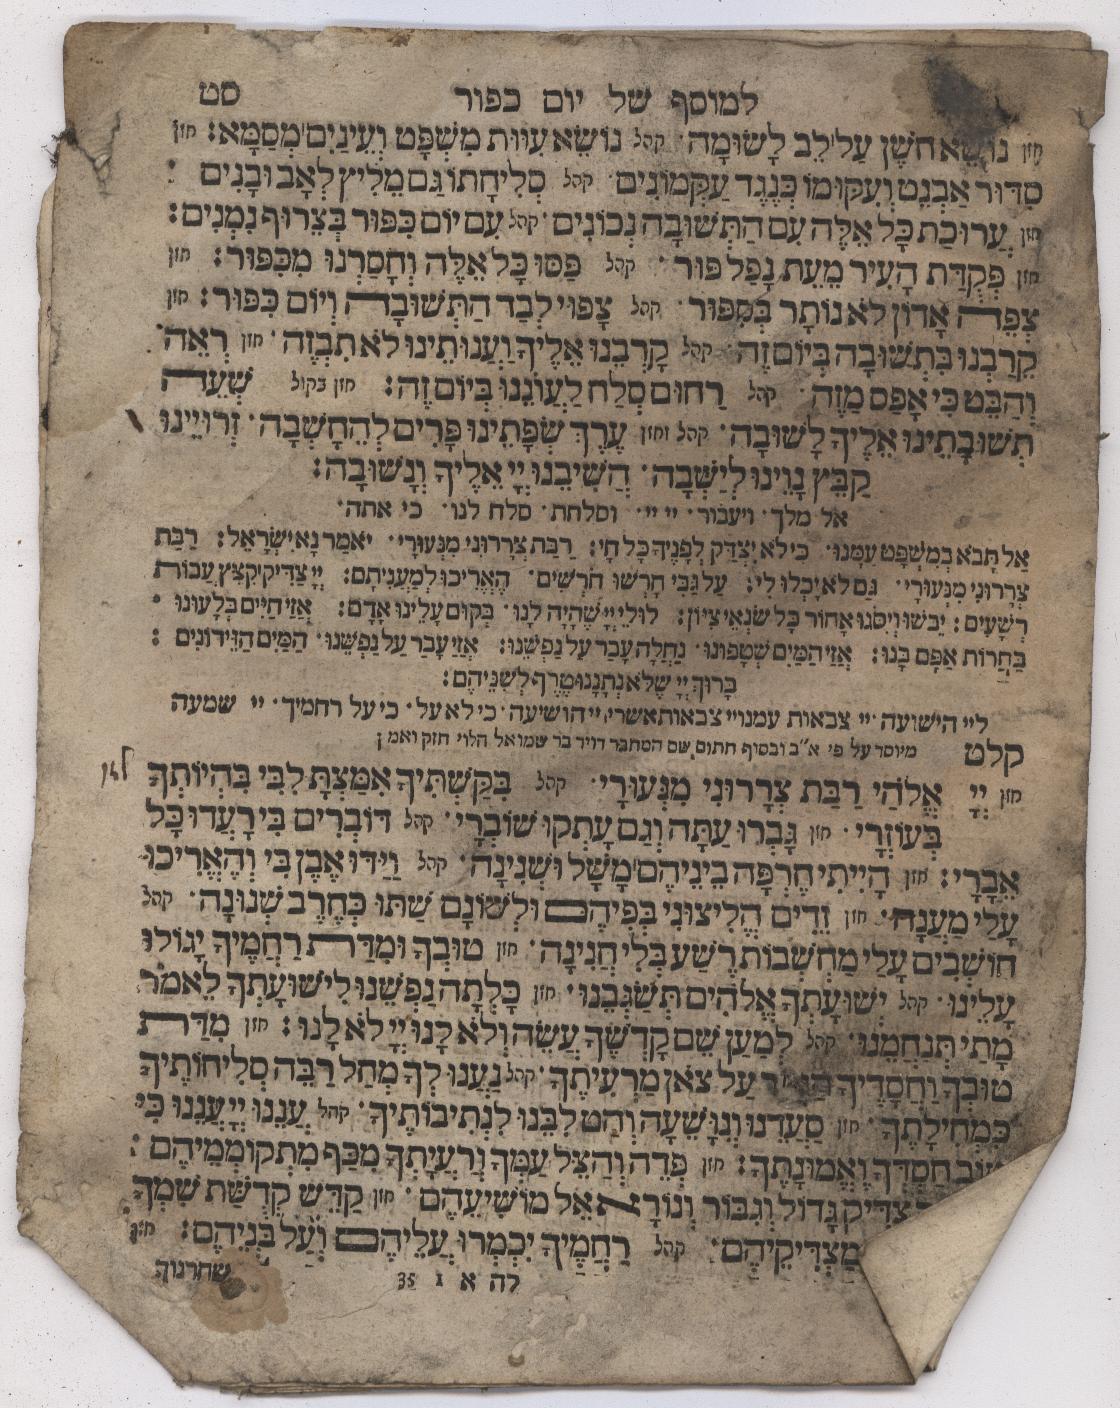 למוסף של יום כפור סט
חזן נושֵׂא חשֶׁן עַל לֵב לָשׂוּמָה׃ קהל נוֹשֵׂא עִוּוּת מִשְׁפָּט וְעֵינַיִם מְסַמָּא׃ חזן
סִדּוּר אַבְנֵט וְעִקּוּמוֹ כְּנֶגֶד עַקְמוֹנִים׃ קהל סְלִיחָתוֹ גַּם מֵלִיץ לְאָב וּבָנִים׃
חזן עֲרוּכַת כָּל אֵלֶּה עִם הַתְּשׁוּבָה נְכוֹנִים׃ קהל עִם יוֹם כִּפּוּר בְּצֵרוּף נִמְנִים׃
חזן פְּקֻדַּת הָעִיר מֵעֵת נָפַל פּוּר׃ קהל פַּסּוּ כָּל אֵלֶּה וְחָסַרְנוּ מִכִּפּוּר׃ חזן
צְפֵה אָדוֹן לֹא נוֹתָר בְּסִפּוּר׃ קהל צָפוּי לְבַד הַתְּשׁוּבָה וְיוֹם כִּפּוּר׃ חזן
קֵרַבְנוּ בִּתְשׁוּבָה בְּיוֹם זֶה׃ קהל קָרְבֵנוּ אֵלֶיךָ וַעֲנוּתֵינוּ לֹא תִבְזֶה׃ חזן רְאֵה
וְהַבֵּט כִּי אָפֵס מַזֶּה׃ קהל רַחוּם סְלַח לַעֲוֹנֵנוּ בְּיוֹם זֶה׃ חזן בקול שְׁעֵה
תְשׁוּבָתֵינוּ אֵלֶיךָ לָשׁוּבָה׃ קהל וחזן עֶרֶךְ שְׂפָתֵינוּ פָּרִים לְהֵחָשְׁבָה׃ זְרוּיֵינוּ
קַבֵּץ נָוֵינוּ לְיַשְּׁבָה׃ הֲשִׁיבֵנוּ יְיָ אֵלֶיךָ וְנָשׁוּבָה׃
אל מלך׃ ויעבור׃ יי יי׃ וסלחת׃ סלח לנו׃ כי אתה׃
אַל תָּבֹא בְמִשְׁפָּט עִמָּנוּ׃ כִּי לֹא יִצְדַּק לְפָנֶיךָ כָל חָי׃ רַבַּת צְרָרוּנִי מִנְּעוּרָי׃ יֹאמַר נָא יִשְׂרָאֵל׃ רַבַּת
צְרָרוּנִי מִנְּעוּרָי׃ גַּם לֹא יָכְלוּ לִי׃ עַל גַּבִּי חָרְשׁוּ חֹרְשִׁים׃ הֶאֱרִיכוּ לְמַעֲנִיתָם׃ יְיָ צַדִּיק קִצֵּץ עֲבוֹת
רְשָׁעִים׃ יֵבֹשׁוּ וְיִסֹּגוּ אָחוֹר כָּל שֹׂנְאֵי צִיּוֹן׃ לוּלֵי יְיָ שֶׁהָיָה לָנוּ׃ בְּקוּם עָלֵינוּ אָדָם׃ אֲזַי חַיִּים בְּלָעוּנוּ׃
בַּחֲרוֹת אַפָּם בָּנוּ׃ אֲזַי הַמַּיִם שְׁטָפוּנוּ׃ נַחְלָה עָבַר עַל נַפְשֵׁנוּ׃ אֲזַי עָבַר עַל נַפְשֵׁנוּ׃ הַמַּיִם הַזֵּידוֹנִים׃
בָּרוּךְ יְיָ שֶׁלֹּא נְתָנָנוּ טֶרֶף לְשִׁנֵּיהֶם׃
ליי הישועה׃ יי צבאות עמנו׃ יי צבאות אשרי׃ יי הושיעה׃ כי לא על׃ כי על רחמיך׃ יי שמעה
קלט מיוסד על פי א"ב ובסוף חתום שם המחבר דויד בר שמואל הלוי חזק ואמן
חזן יְיָ אֱלֹהַי רַבַּת צְרָרוּנִי מִנְּעוּרָי׃ קהל בִּקַּשְׁתִּיךָ אִמַּצְתָּ לִבִּי בִּהְיוֹתְךָ
בְּעוֹזְרָי׃ חזן גָּבְרוּ עַתָּה וְגַם עָתְקוּ שׁוֹבְרָי׃ קהל דּוֹבְרִים בִּי רָעֲדוּ כָּל
אֵבָרָי׃ חזן הָיִיתִי חֶרְפָּה בֵּינֵיהֶם מָשָׁל וּשְׁנִינָה׃ קהל וַיַּדּוּ אֶבֶן בִּי וְהֶאֱרִיכוּ
עָלַי מַעֲנָה׃ חזן זֵדִים הֱלִיצוּנִי בְּפִיהֶם וּלְשׁוֹנָם שַׁתּוּ כְּחֶרֶב שְׁנוּנָה׃ קהל
חוֹשְׁבִים עָלַי מַחְשְׁבוֹת רֶשַׁע בְּלִי חֲנִינָה׃ חזן טוּבְךָ וּמִדַּת רַחֲמֶיךָ יָגוֹלּוּ
עָלֵינוּ׃ קהל יְשׁוּעָתְךָ אֱלֹהִים תְּשַׂגְּבֵנוּ׃ חזן כָּלְתָה נַפְשֵׁנוּ לִישׁוּעָתְךָ לֵאמֹר
מָתַי תְּנַחֲמֵנוּ׃ קהל לְמַעַן שֵׁם קָדְשֶׁךָ עֲשֵׂה וְלֹא לָנוּ יְיָ לֹא לָנוּ׃ חזן מִדַּת
טוּבְךָ וְחַסְדֶּיךָ עַל צֹאן מַרְעִיתֶךָ׃ קהל נַעֲנוּ לְךָ מְחַל רַבֵּה סְלִיחוֹתֶיךָ
כִּמְחִילָתֶךָ׃ חזן סַעֲדֵנוּ וְנִוָּשֵׁעָה וְהַט לִבֵּנוּ לִנְתִיבוֹתֶיךָ׃ קהל עֲנֵנוּ יְיָ עֲנֵנוּ כִּי
חַסְדֶּךָ וֶאֱמוּנָתֶךָ׃ חזן פְּדֵה וְהַצֵּל עַמְּךָ וְרַעְיָתְךָ מִכַּף מִתְקוֹמְמֵיהֶם׃
צַדִּיק גָּדוֹל וְגִבּוֹר וְנוֹרָא אֵל מוֹשִׁיעֵהֶם׃ חזן קַדֵּשׁ קְדֻשַּׁת שִׁמְךָ
מַצְדִּיקֵיהֶם׃ קהל רַחֲמֶיךָ יִכְמְרוּ עֲלֵיהֶם וְעַל בְּנֵיהֶם׃ חזן
לה א 1 35 שחרנוך